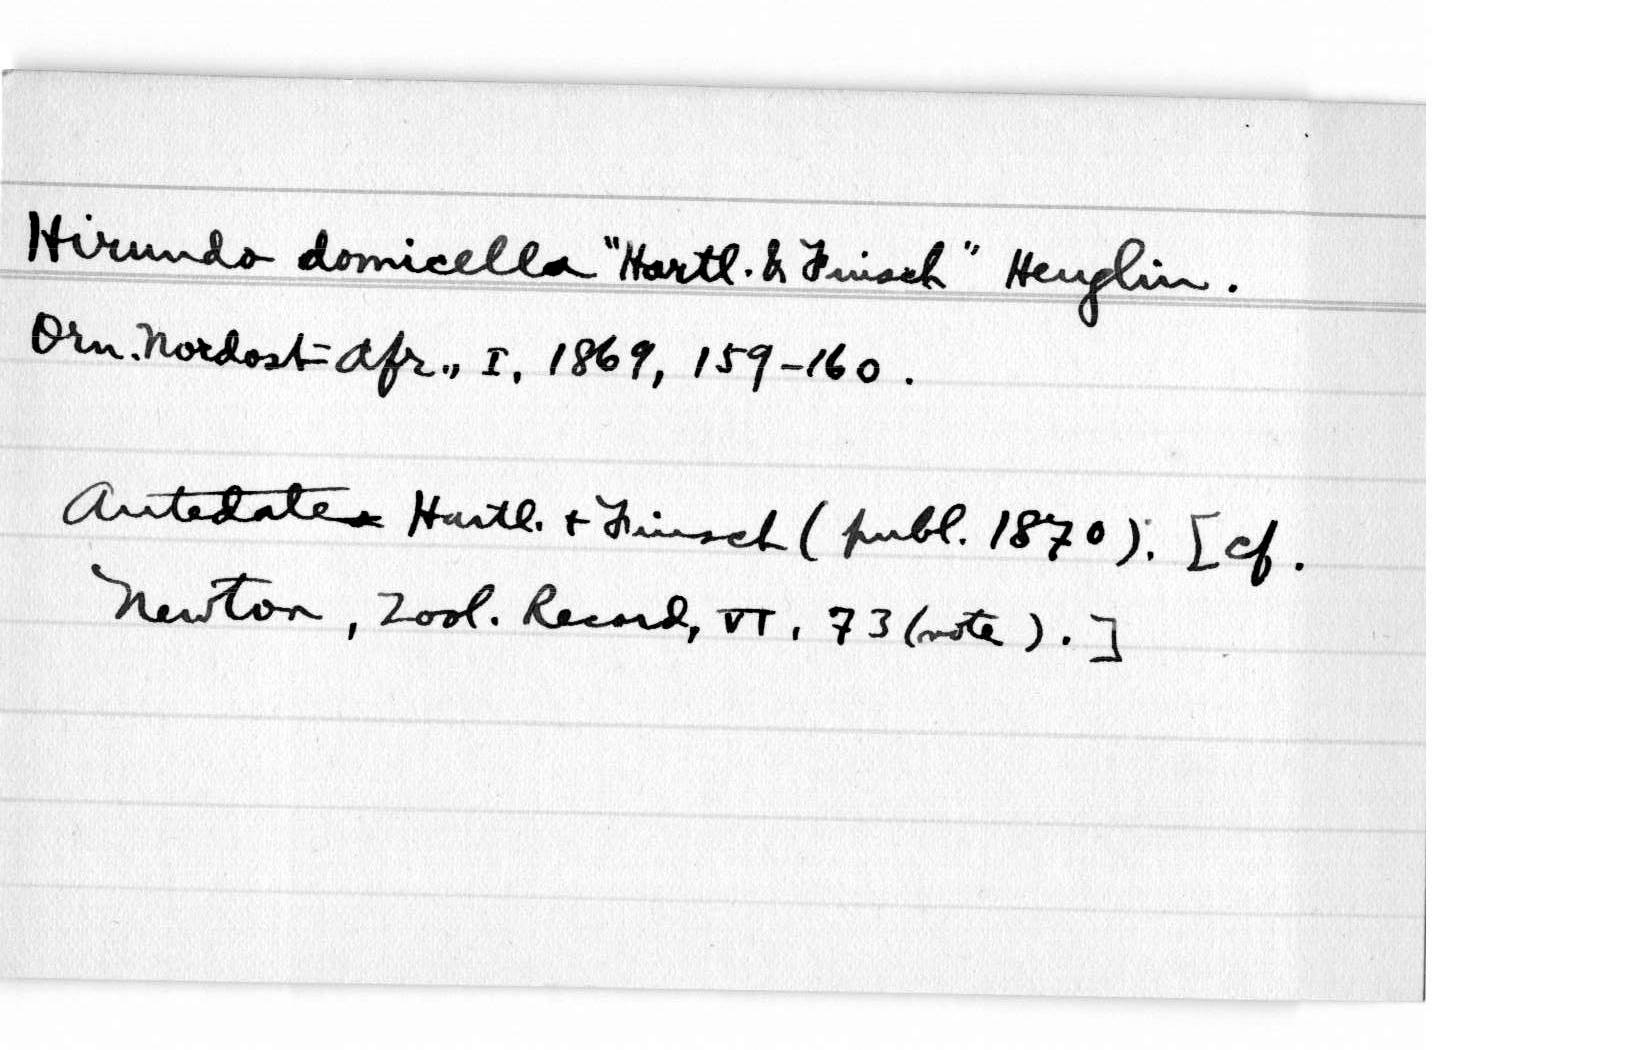 Hirundo domicella "Hartl. & Finsch" Heuglin.
Orn. Nordost=Afr., I, 1869, 159-160.
Antedates Hartl. + Finsch (publ. 1870). [cf.
Newton, Zool. Record, VI, 73 (note).]